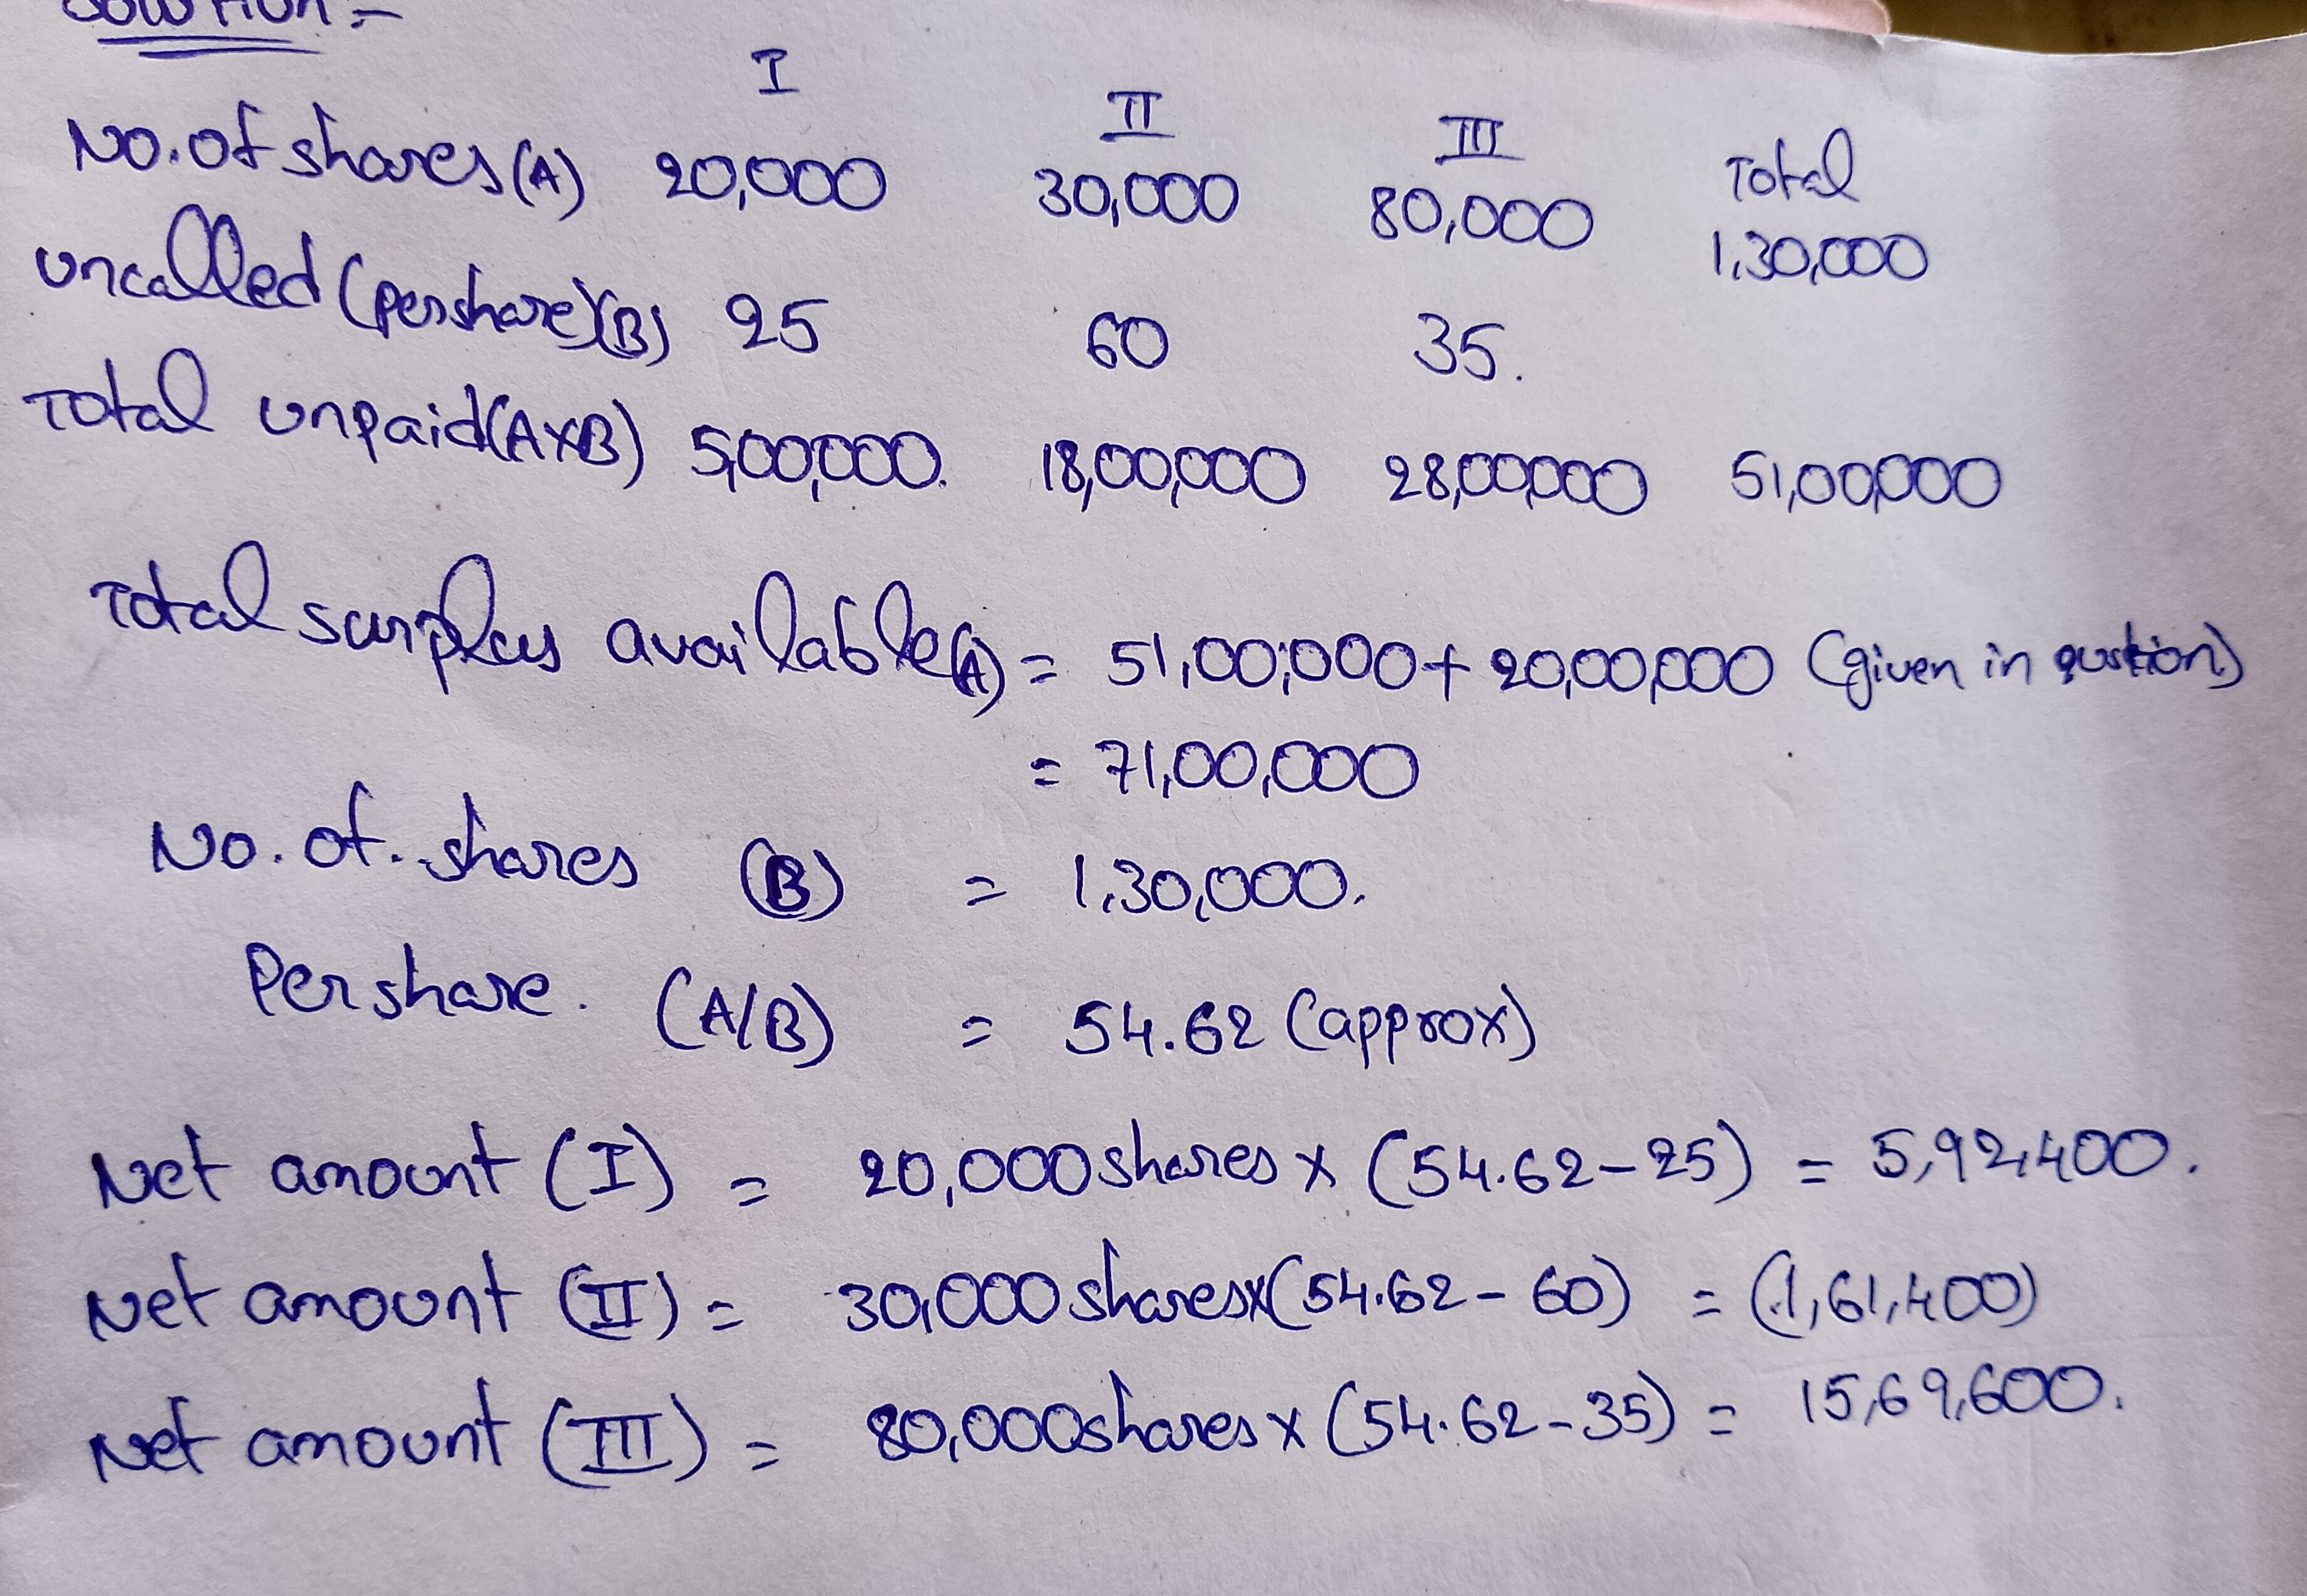 Solution :-
I II III Total
No. of shares (A) 20,000 30,000 80,000 1,30,000
uncalled (per share) (B) 25 60 35.
Total unpaid (AXB) 5,00,000. 18,00,000 28,00,000 51,00,000
Total surplus available (A) = 51,00,000 + 20,00,000 (given in qustion)
= 71,00,000
No. of. shares (B) = 1,30,000.
Per share. (A/B) = 54.62 (approx)
Net amount (I) = 20,000 shares x (54.62-25) = 5,92,400.
Net amount (II) = 30,000 shares x (54.62 - 60) = (1,61,400)
Net amount (III) = 80,000 shares x (54.62-35) = 15,69,600.